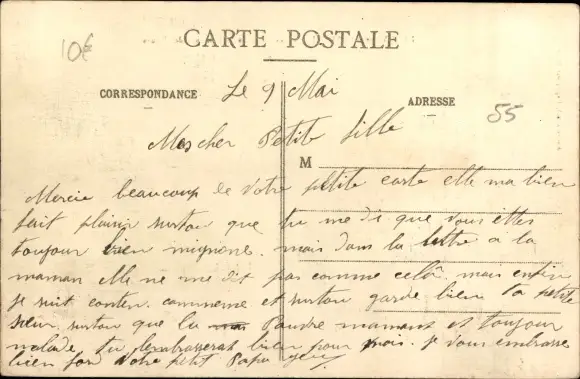 10€
CARTE POSTALE
CORRESPONDANCE
Le 9 Mai
ADRESSE
55
Mes cher Petite fille
M
Mercie beaucoup de Votre petite carte elle ma bien
fait plaisir surtou que tu me di que vous êttes
toujour bien mignone. mais dans la lettre a la
maman elle ne me dit pas comme celà. mais enfin
je suit conten. canmeme et surtou garde bien ta petite
sœur. surtou que la Pauvre maman et toujour
malade. tu lembrasserat bien pour moi. je vous embrasse
bien for Votre petit Papa